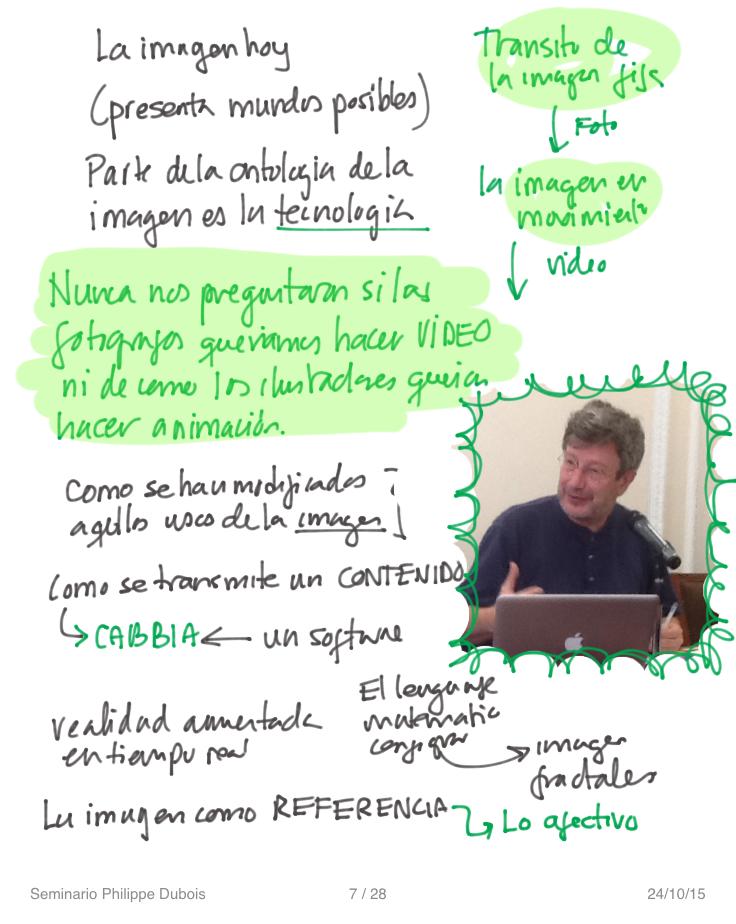 La imagen hoy
(presenta mundos posibles)
Parte de la ontologia de la
imagen es la tecnologia
Transito de
la imagen fija
Foto
la imagen en
movimiento
video
Nunca nos preguntaron si los
fotografos queriamos hacer VIDEO
ni de como los ilustradores querian
hacer animación.
Como se han modificados
aqellos usos de la imagen
Como se transmite un CONTENIDO
CABBIA un software
realidad aumentada
en tiempo real
El lenguaje
matematic
imagen
fractales
La imagen como REFERENCIA
Lo afectivo
Seminario Philippe Dubois 7 / 28 24/10/15